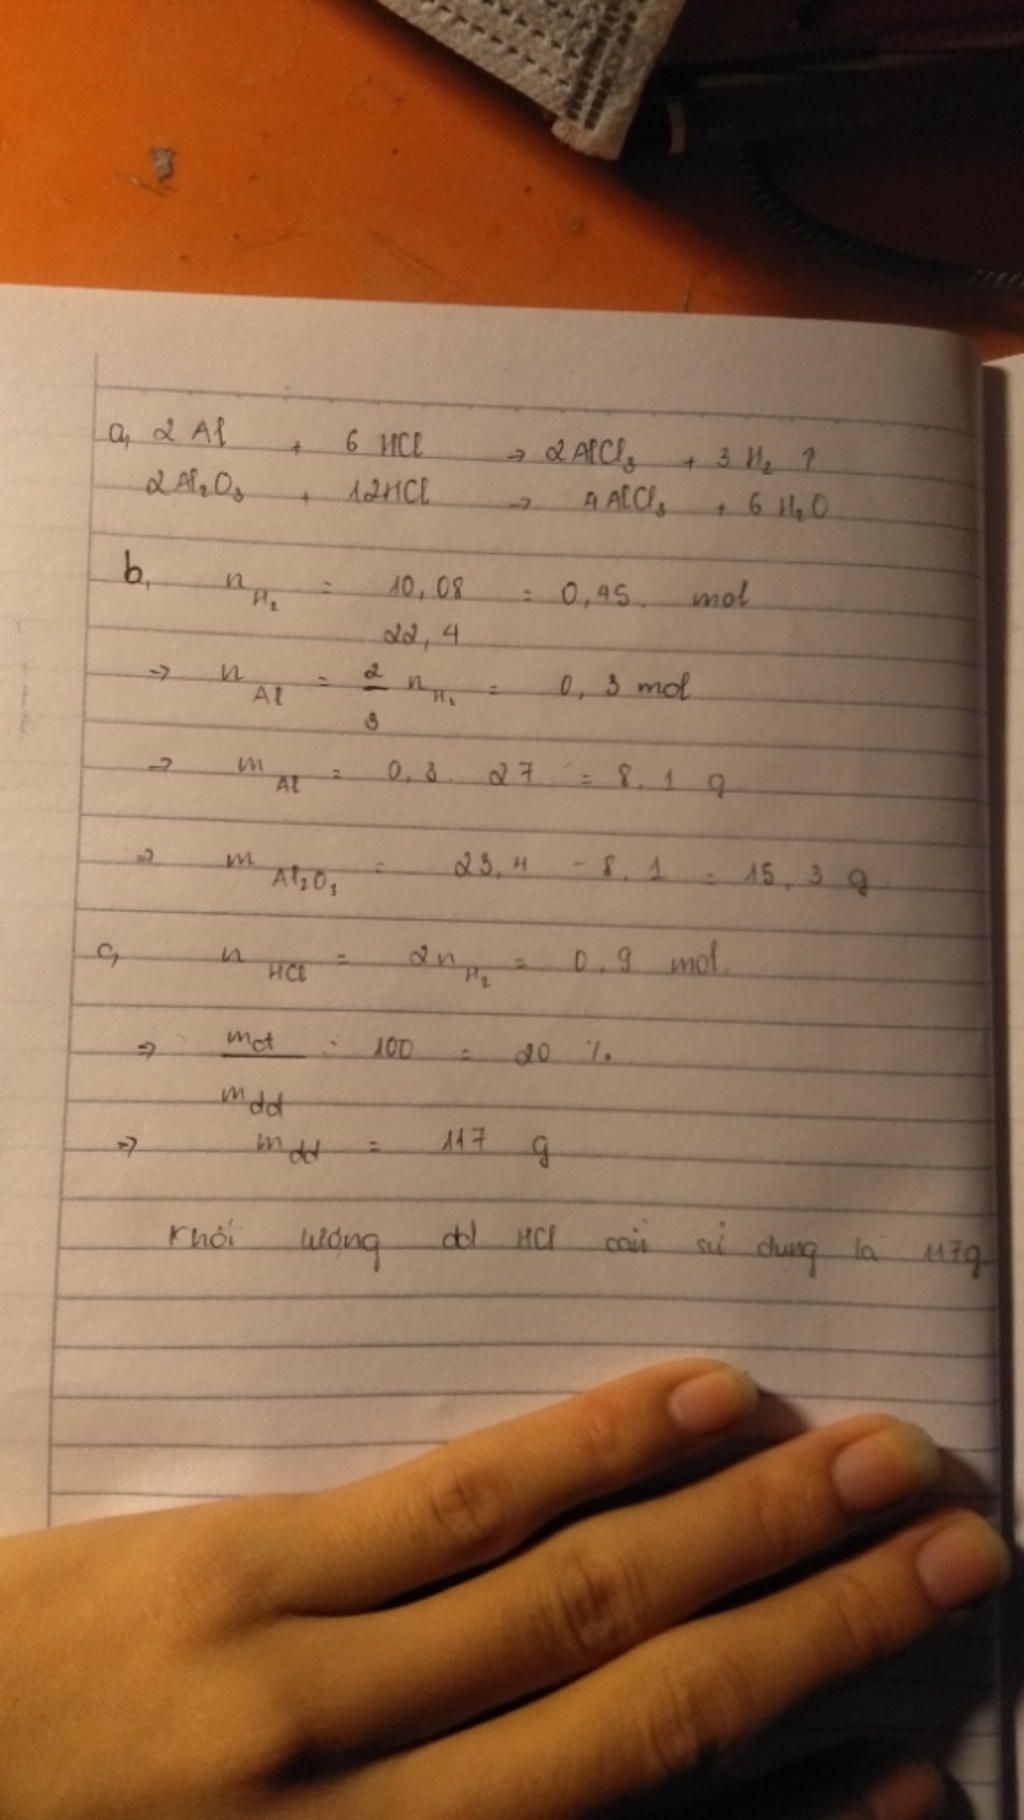 a, 2 Al + 6 HCl → 2AlCl₃ + 3 H₂ ↑
2Al₂O₃ + 12HCl → 4AlCl₃ + 6 H₂O
b, n H₂ = 10,08 = 0,45. mol
22,4
→ n Al = 2 n H₂ = 0, 3 mol
3
→ m Al = 0,3. 27 = 8.1 g
⇒ m Al₂O₃ = 23,4 - 8.1 = 15,3 g.
c, n HCl = 2n H₂ = 0,9 mol.
⇒ mct . 100 = 20 %.
m dd
⇒ m dd = 117 g
Khối lượng dd HCl cần sử dụng là 117g